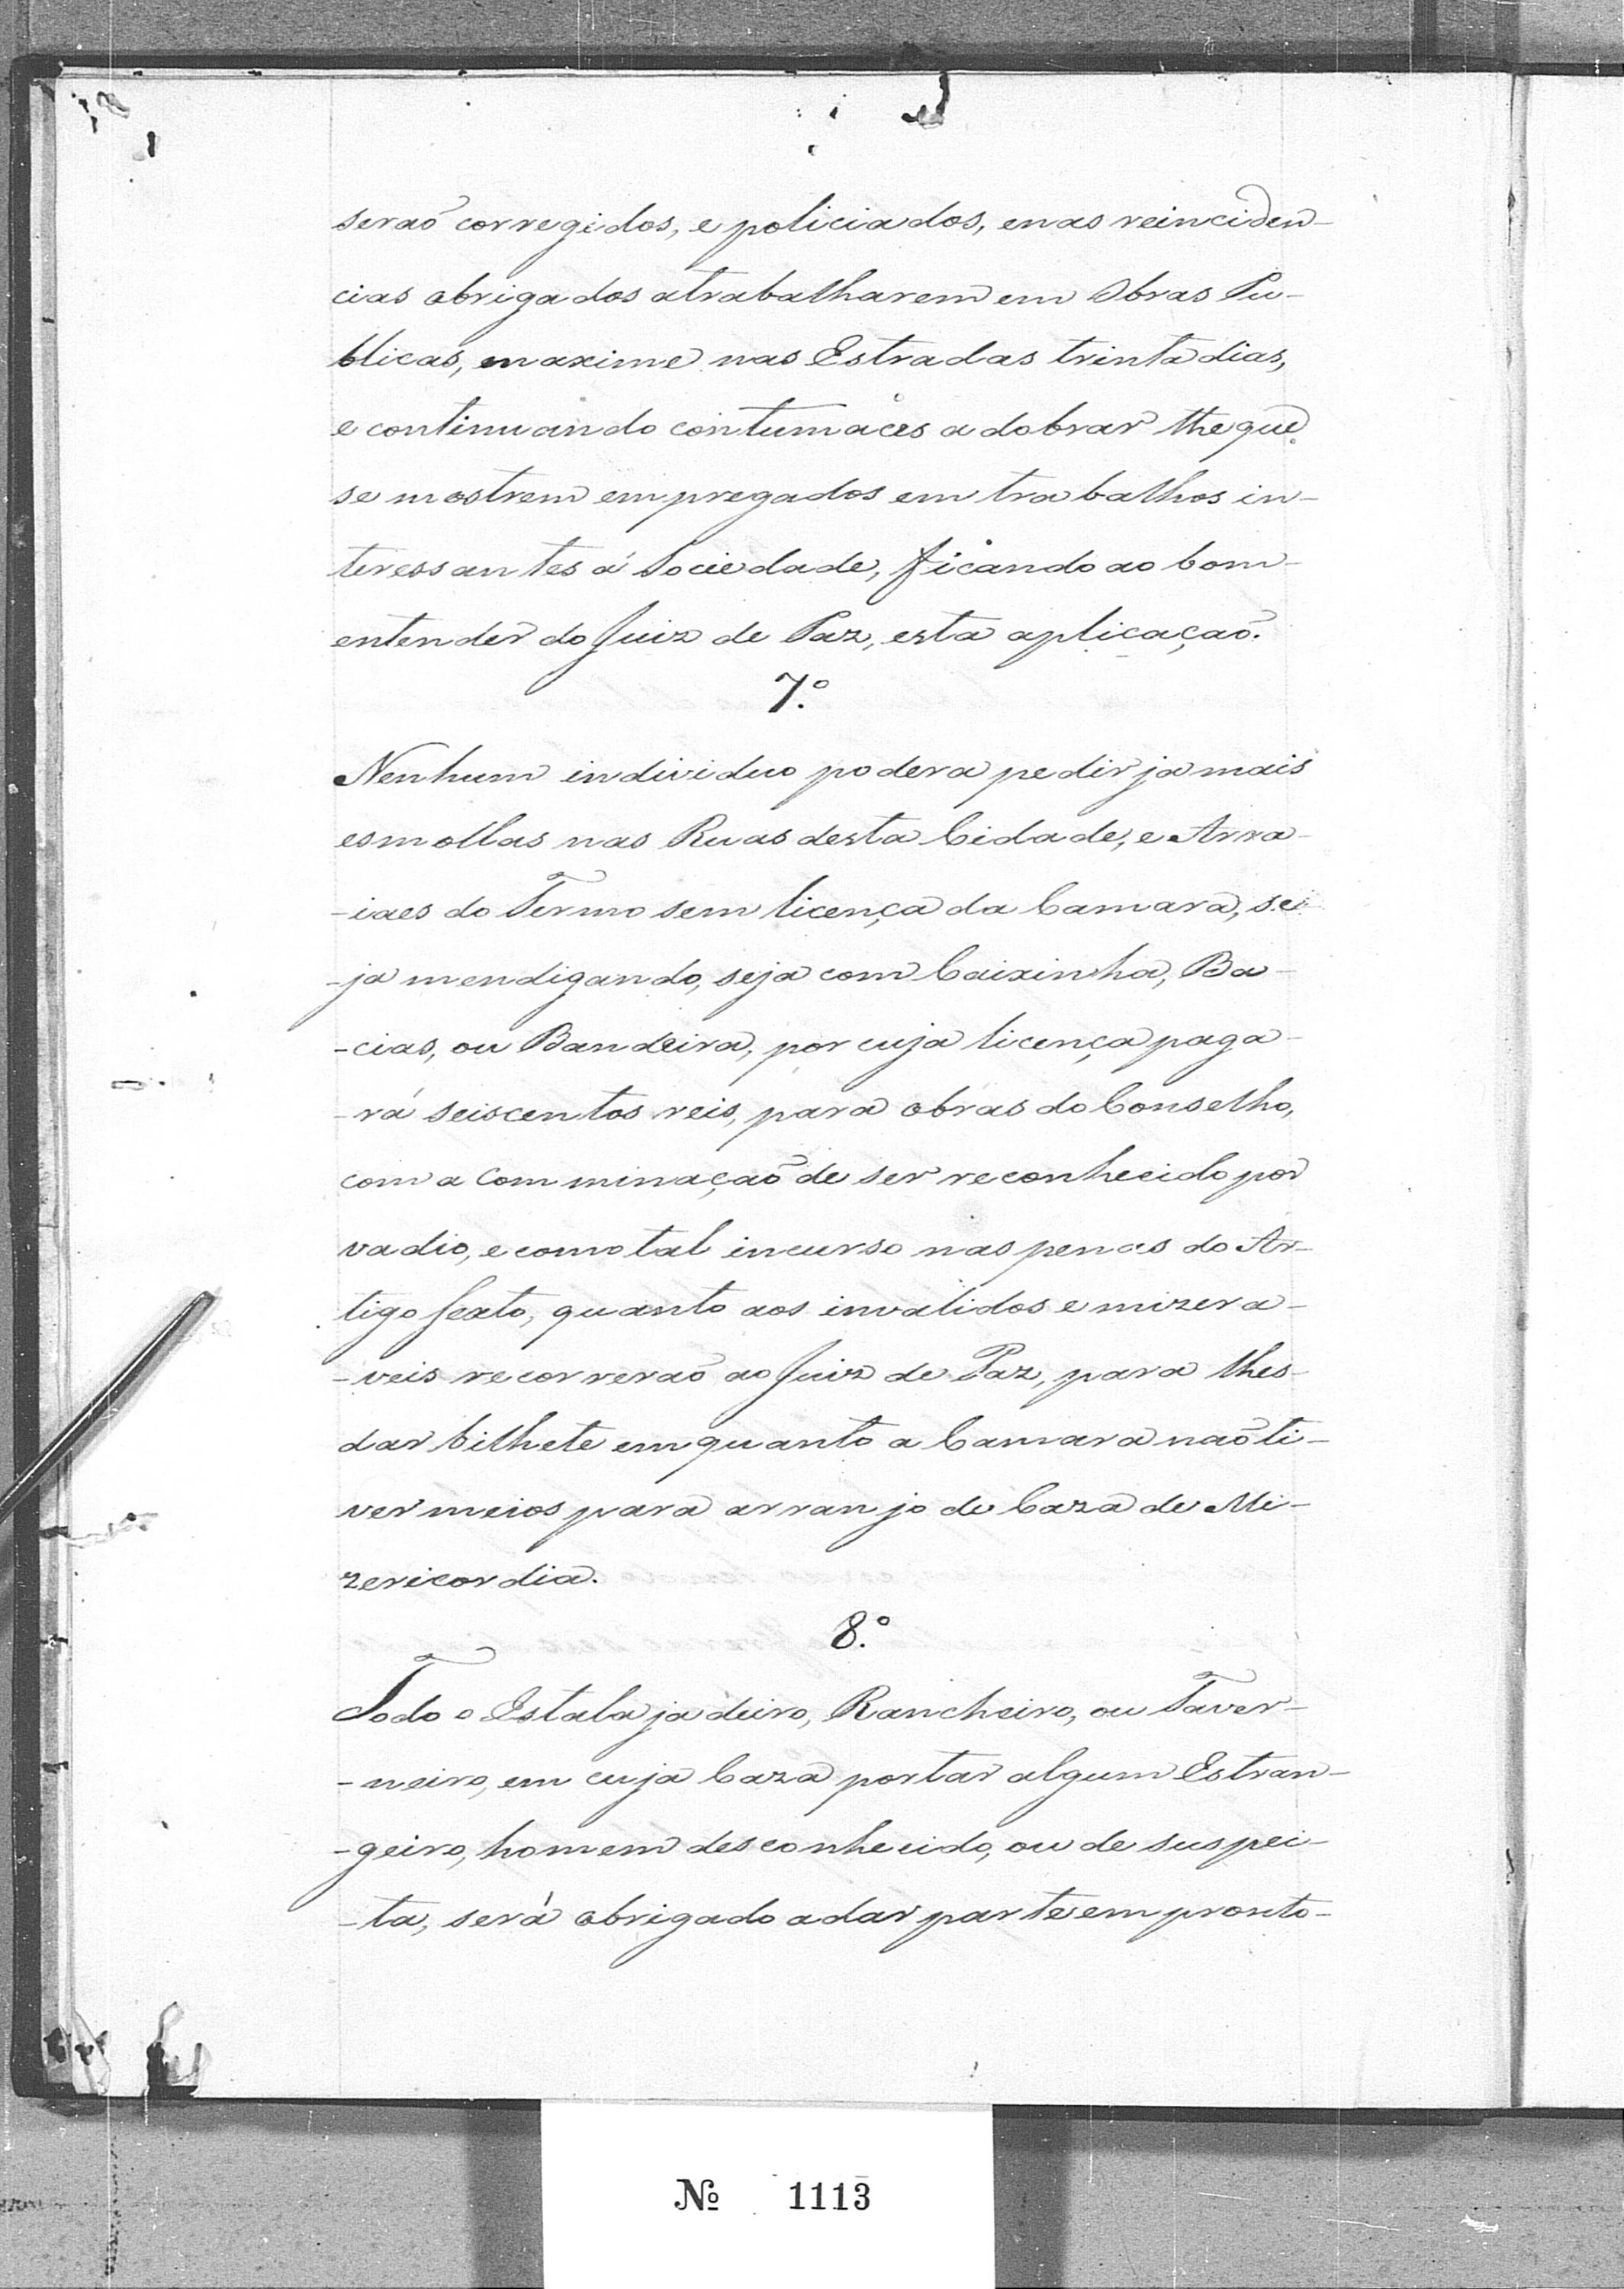 seraõ corregidos, e policiados, enas reinciden-
cias obrigados atrabalharem em Obras Pu-
blicas, maxime nas Estradas trinta dias,
e continuando contumaces a dobrar the que
se mostrem empregados em trabalhos in-
teressantes á Sociedade, ficando ao bom
entender do Juiz de Paz, esta aplicaçaõ.
7.º
Nenhum individuo podera pedir ja mais
esmollas nas Ruas desta Cidade, e Arra-
-iaes do Termo sem licença da Camara, se
-ja mendigando, seja com Caixinha, Ba-
-cias, ou Bandeira, por cuja licença paga-
-rá seiscentos reis, para obras do Conselho,
com a Comminaçaõ de ser reconhecido por
vadio, e como tal incurso nas penas do Ar-
tigo sexto, quanto aos invalidos e mizera-
-veis recorreraõ ao Juiz de Paz, para lhes
dar bilhete em quanto a Camara naõ ti-
ver meios para arranjo de Caza de Mi-
zericordia.
8.º
Todo o Estalajadeiro, Rancheiro, ou Taver-
-neiro, em cuja Caza portar algum Estran-
-geiro, homem desconhecido, ou de suspei-
-ta, será obrigado adar parte em pronto-
№ 1113